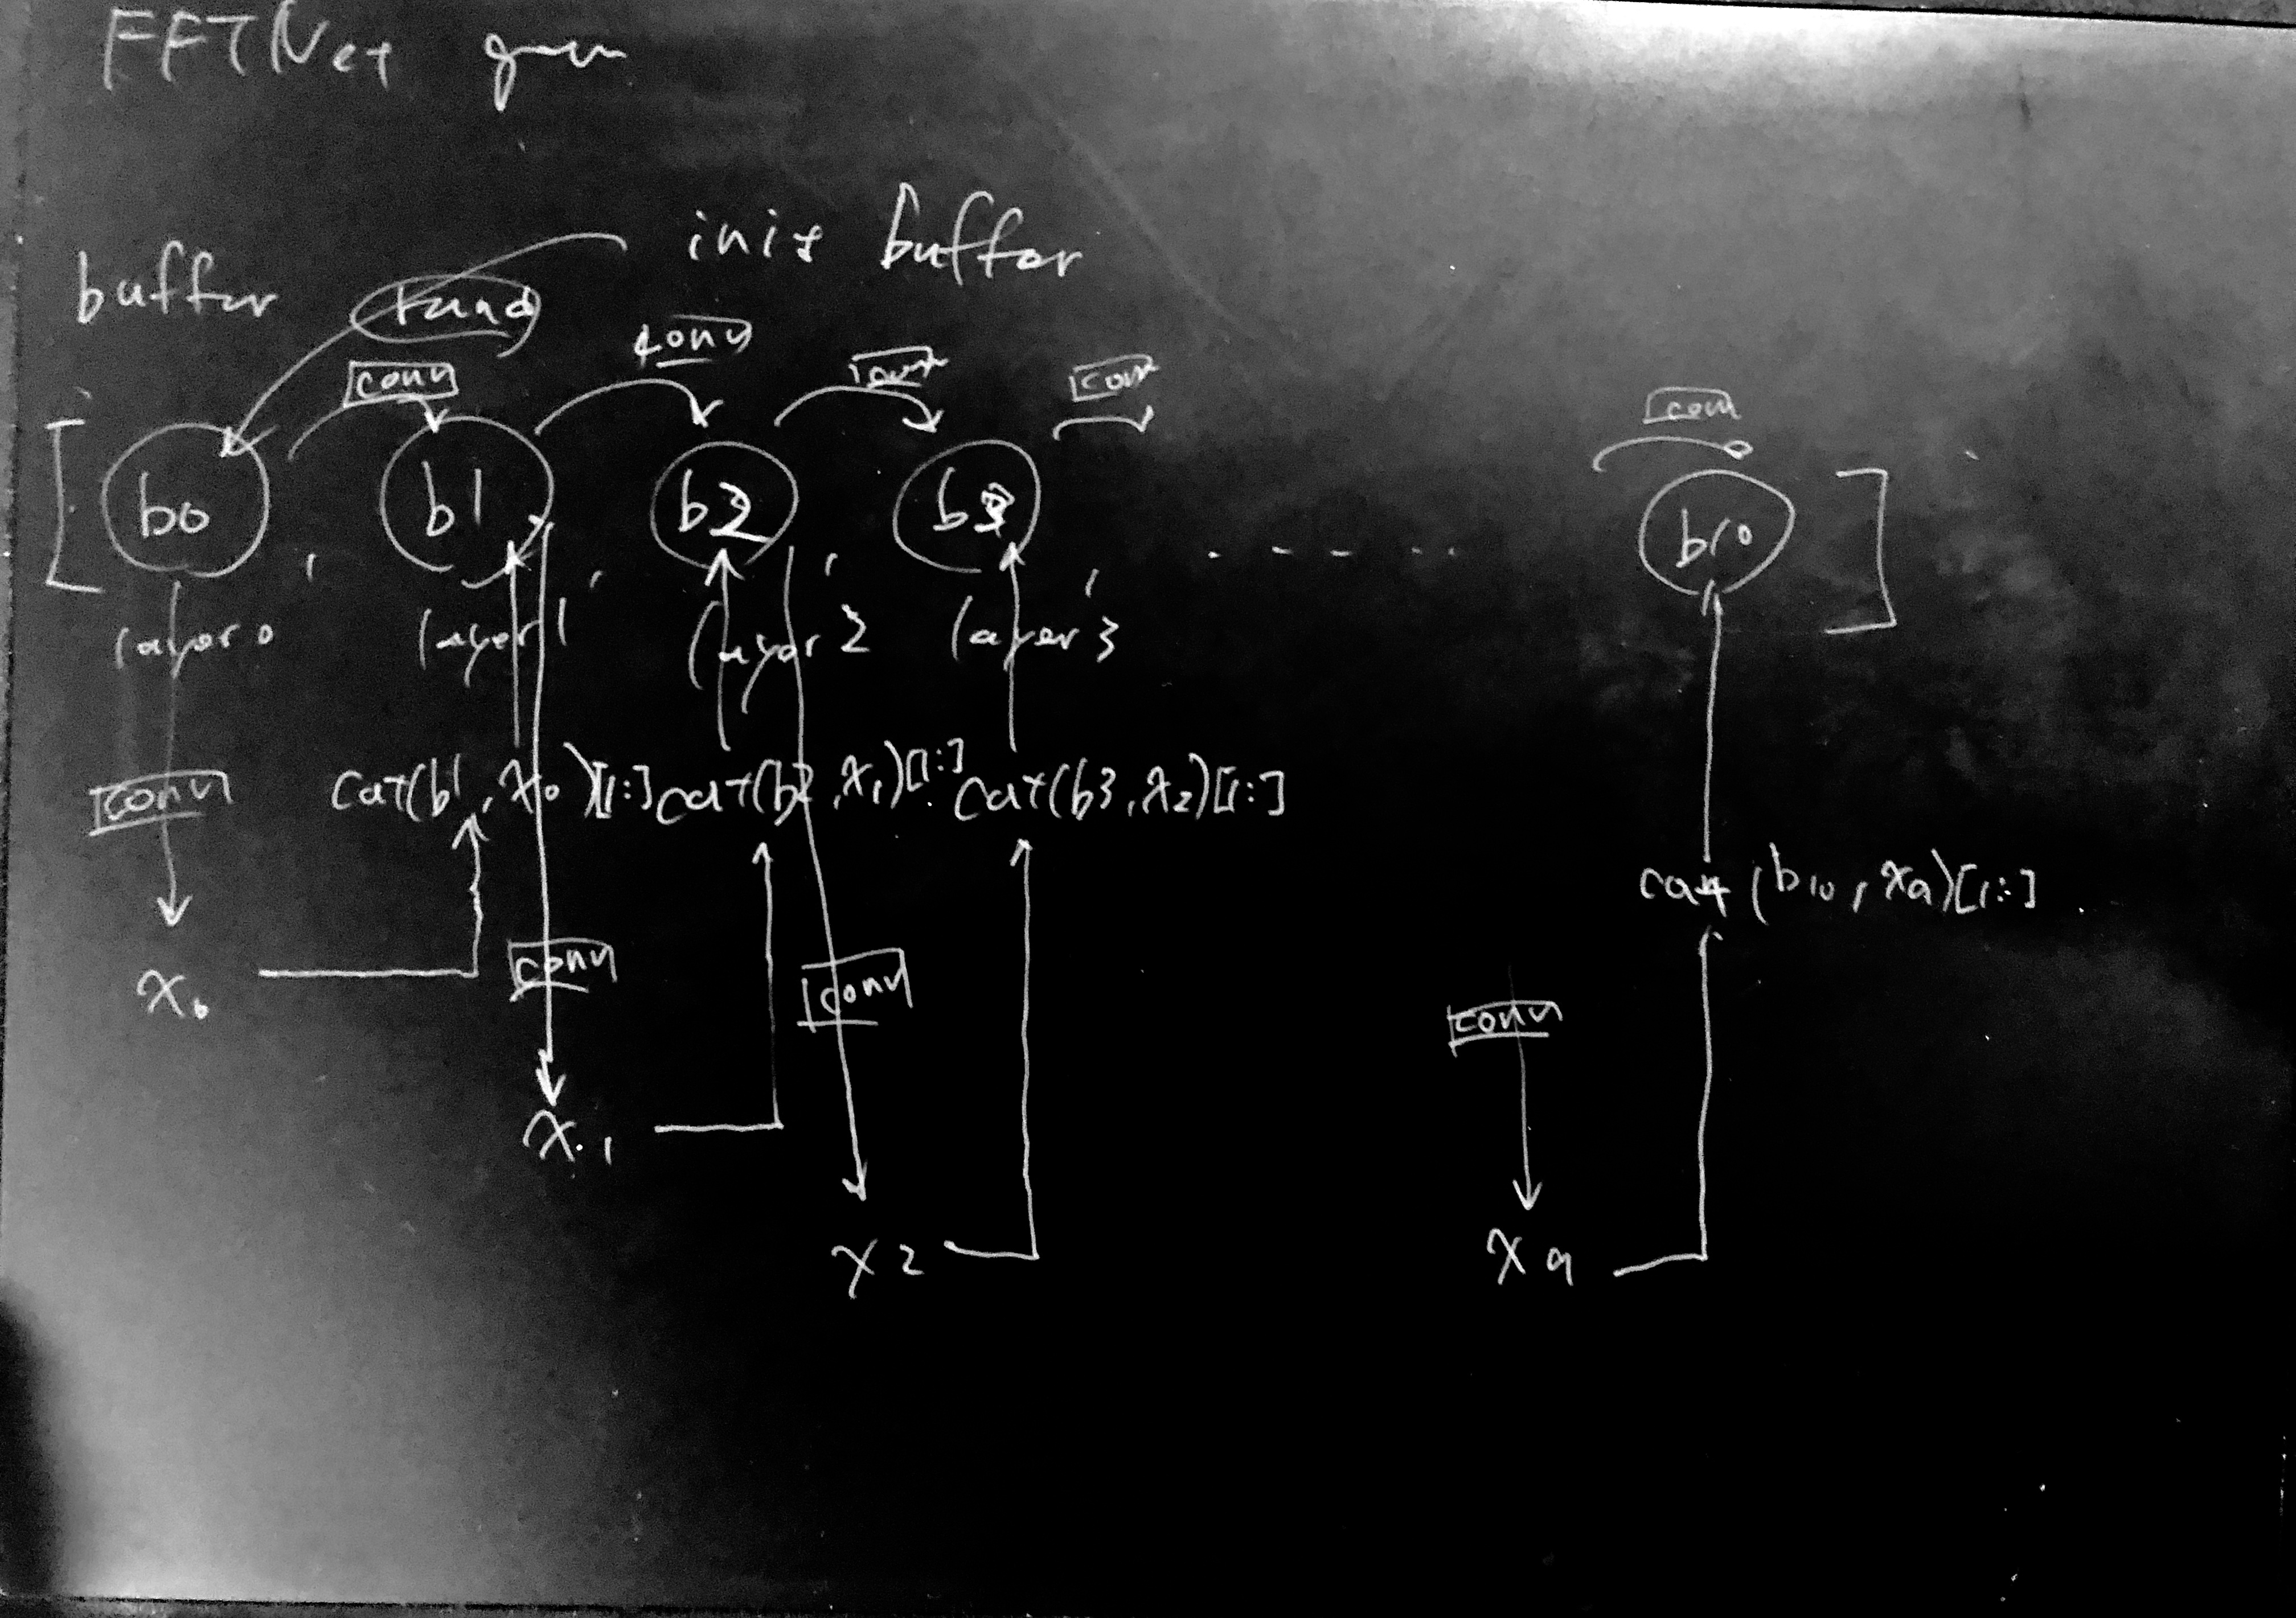 FFTNet gen
init buffer
buffer
rand
conv conv conv conv conv
[ b0 , b1 , b2 , b3 , ------ b10 ]
layer0 layer1 layer2 layer3
conv cat(b1,x0)[1:] cat(b2,x1)[1:] cat(b3,x2)[1:]
cat(b10,x9)[1:]
x0 conv conv conv
x1
x2 x9